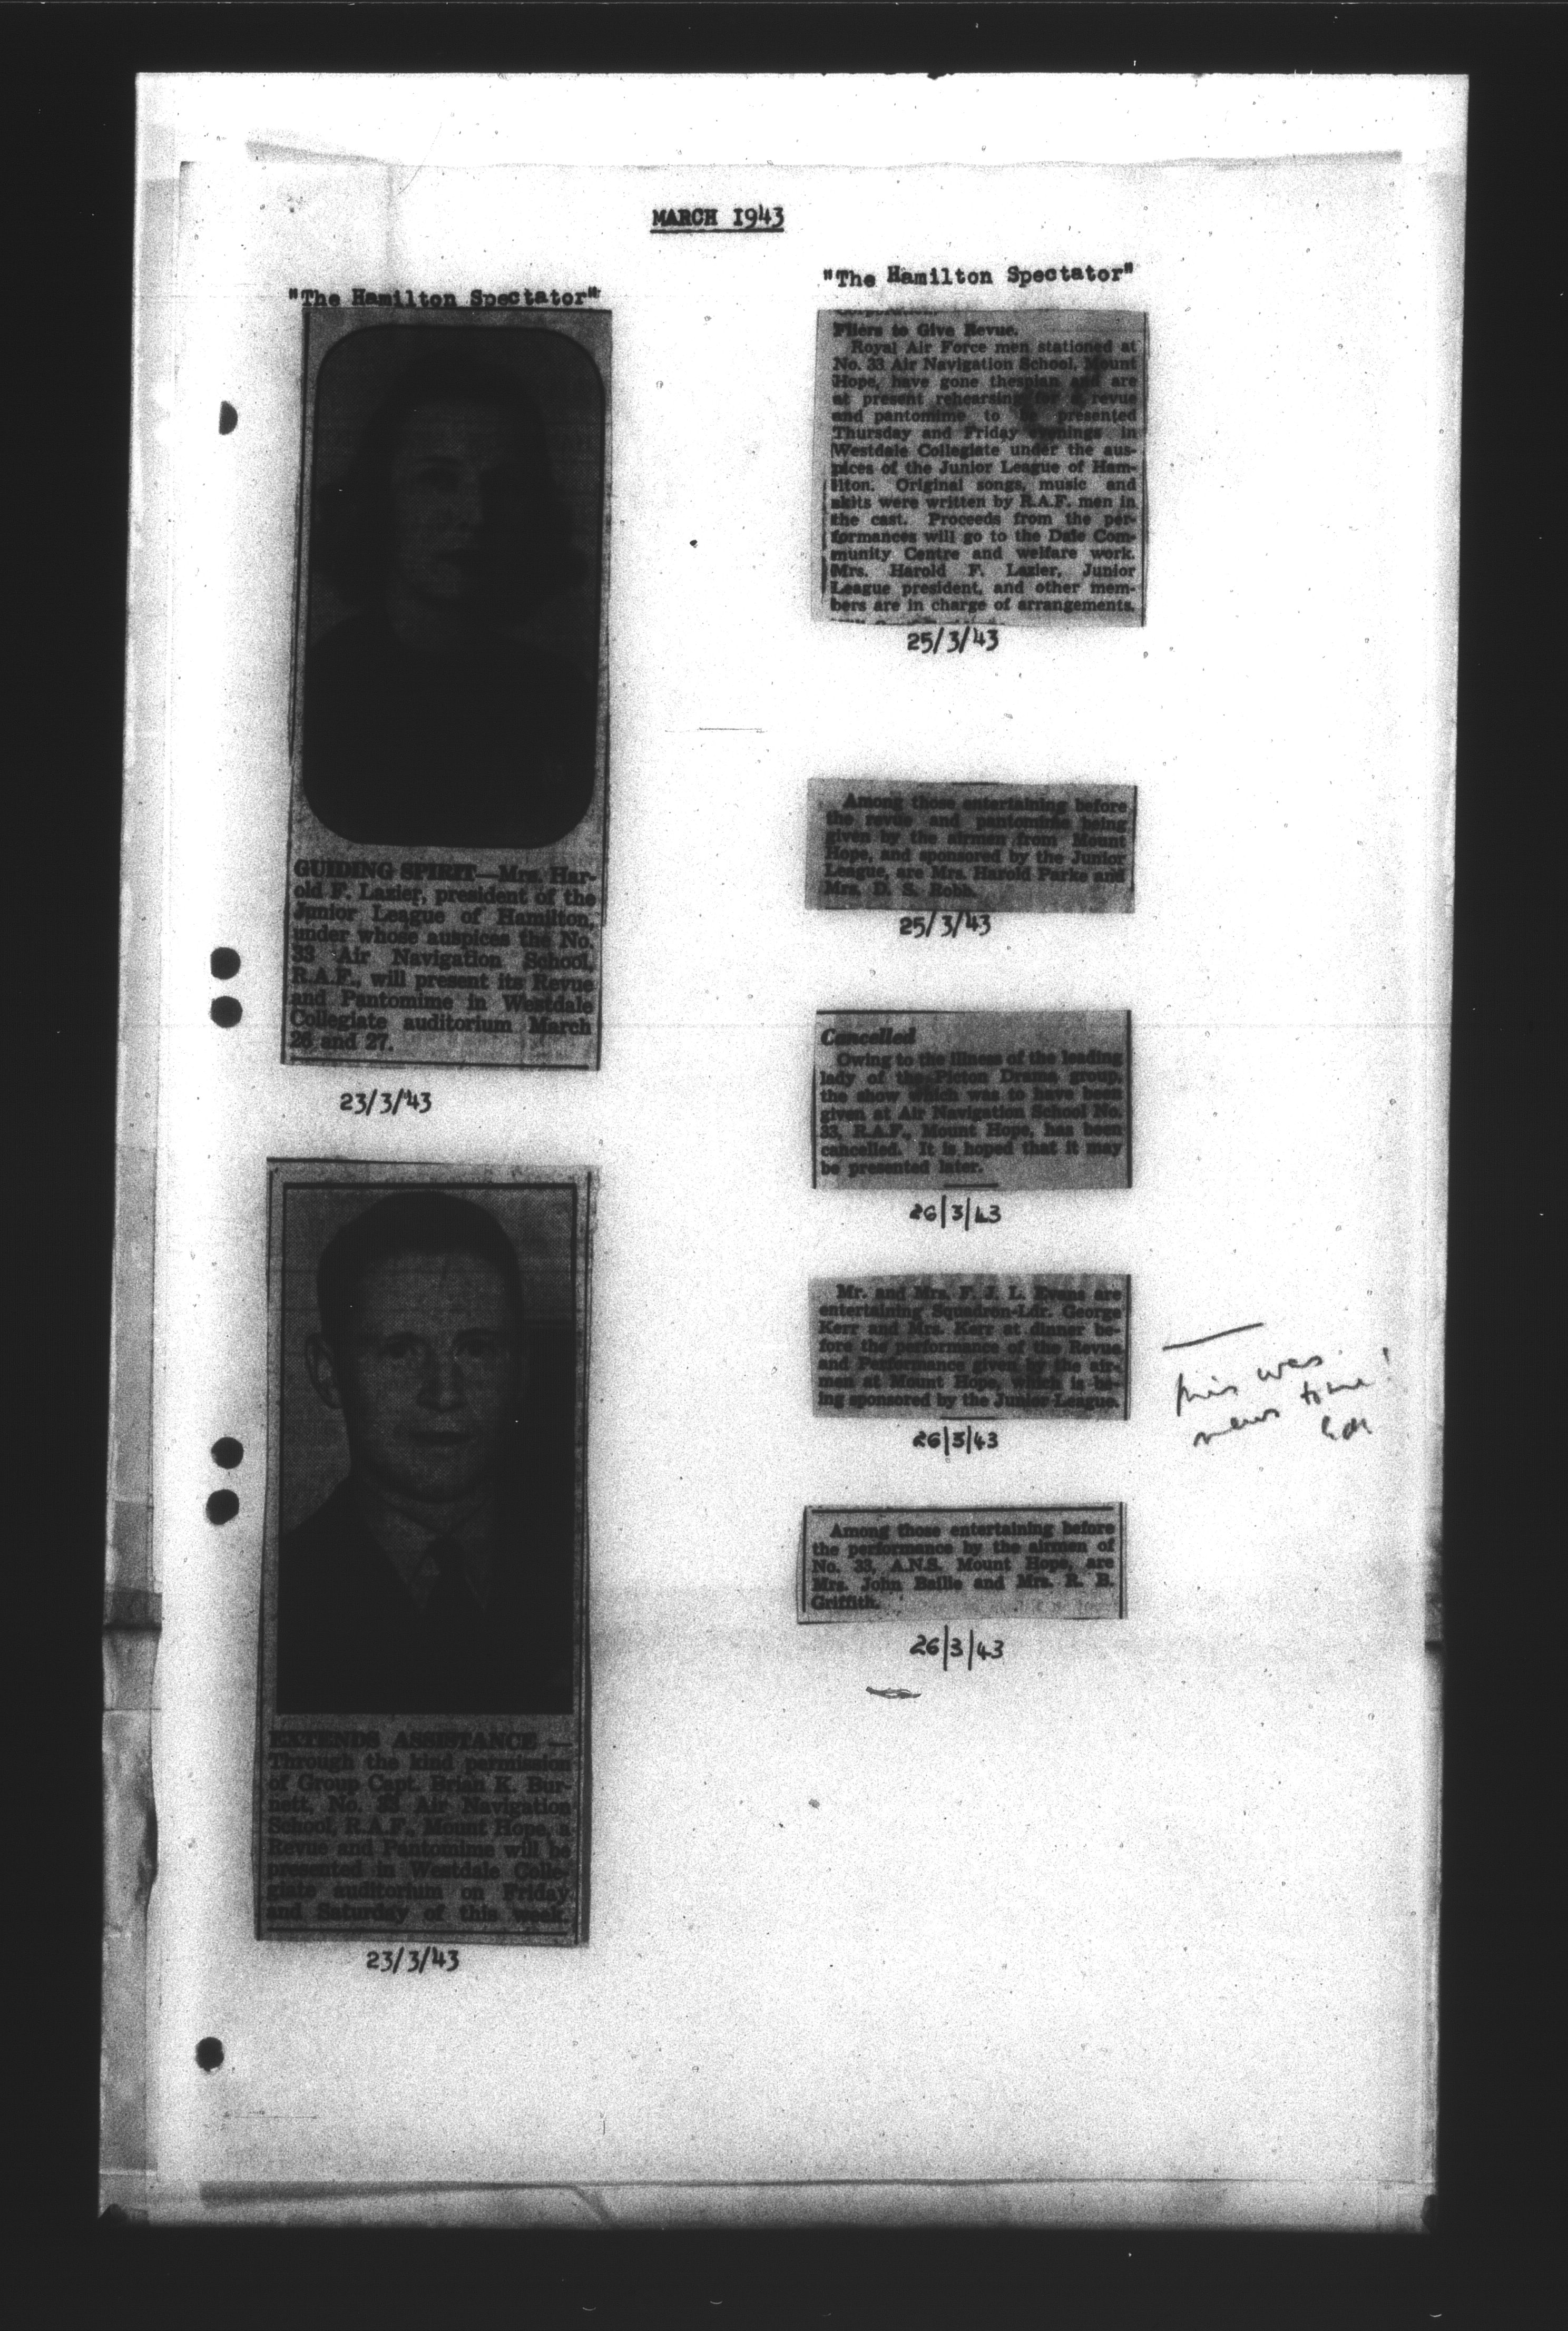 MARCH 1943
"The Hamilton Spectator"
GUIDING SPIRIT—Mrs. Har-
old F. Lazier, president of the
Junior League of Hamilton,
under whose auspices the No.
33 Air Navigation School,
R.A.F., will present its Revue
and Pantomime in Westdale
Collegiate auditorium March
26 and 27.
23/3/43
EXTENDS ASSISTANCE —
Through the kind permission
of Group Capt. Brian K. Bur-
nett, No. 33 Air Navigation
School, R.A.F., Mount Hope, a
Revue and Pantomime will be
presented in Westdale Colle-
giate auditorium on Friday
and Saturday of this week.
23/3/43
"The Hamilton Spectator"
Fliers to Give Revue.
Royal Air Force men stationed at
No. 33 Air Navigation School, Mount
Hope, have gone thespian and are
at present rehearsing for a revue
and pantomime to be presented
Thursday and Friday evenings in
Westdale Collegiate under the aus-
pices of the Junior League of Ham-
ilton. Original songs, music and
skits were written by R.A.F. men in
the cast. Proceeds from the per-
formances will go to the Dale Com-
munity Centre and welfare work.
Mrs. Harold F. Lazier, Junior
League president, and other mem-
bers are in charge of arrangements.
25/3/43
Among those entertaining before
the revue and pantomime being
given by the airmen from Mount
Hope, and sponsored by the Junior
League, are Mrs. Harold Parke and
Mrs. D. S. Robb.
25/3/43
Cancelled
Owing to the illness of the leading
lady of the Picton Drama group,
the show which was to have been
given at Air Navigation School No.
33, R.A.F., Mount Hope, has been
cancelled. It is hoped that it may
be presented later.
26/3/43
Mr. and Mrs. F. J. L. Evans are
entertaining Squadron-Ldr. George
Kerr and Mrs. Kerr at dinner be-
fore the performance of the Revue
and Performance given by the air-
men at Mount Hope, which is be-
ing sponsored by the Junior League.
26/3/43
this was
news to me!
Among those entertaining before
the performance by the airmen of
No. 33, A.N.S. Mount Hope, are
Mrs. John Baillie and Mrs. R. B.
Griffith.
26/3/43